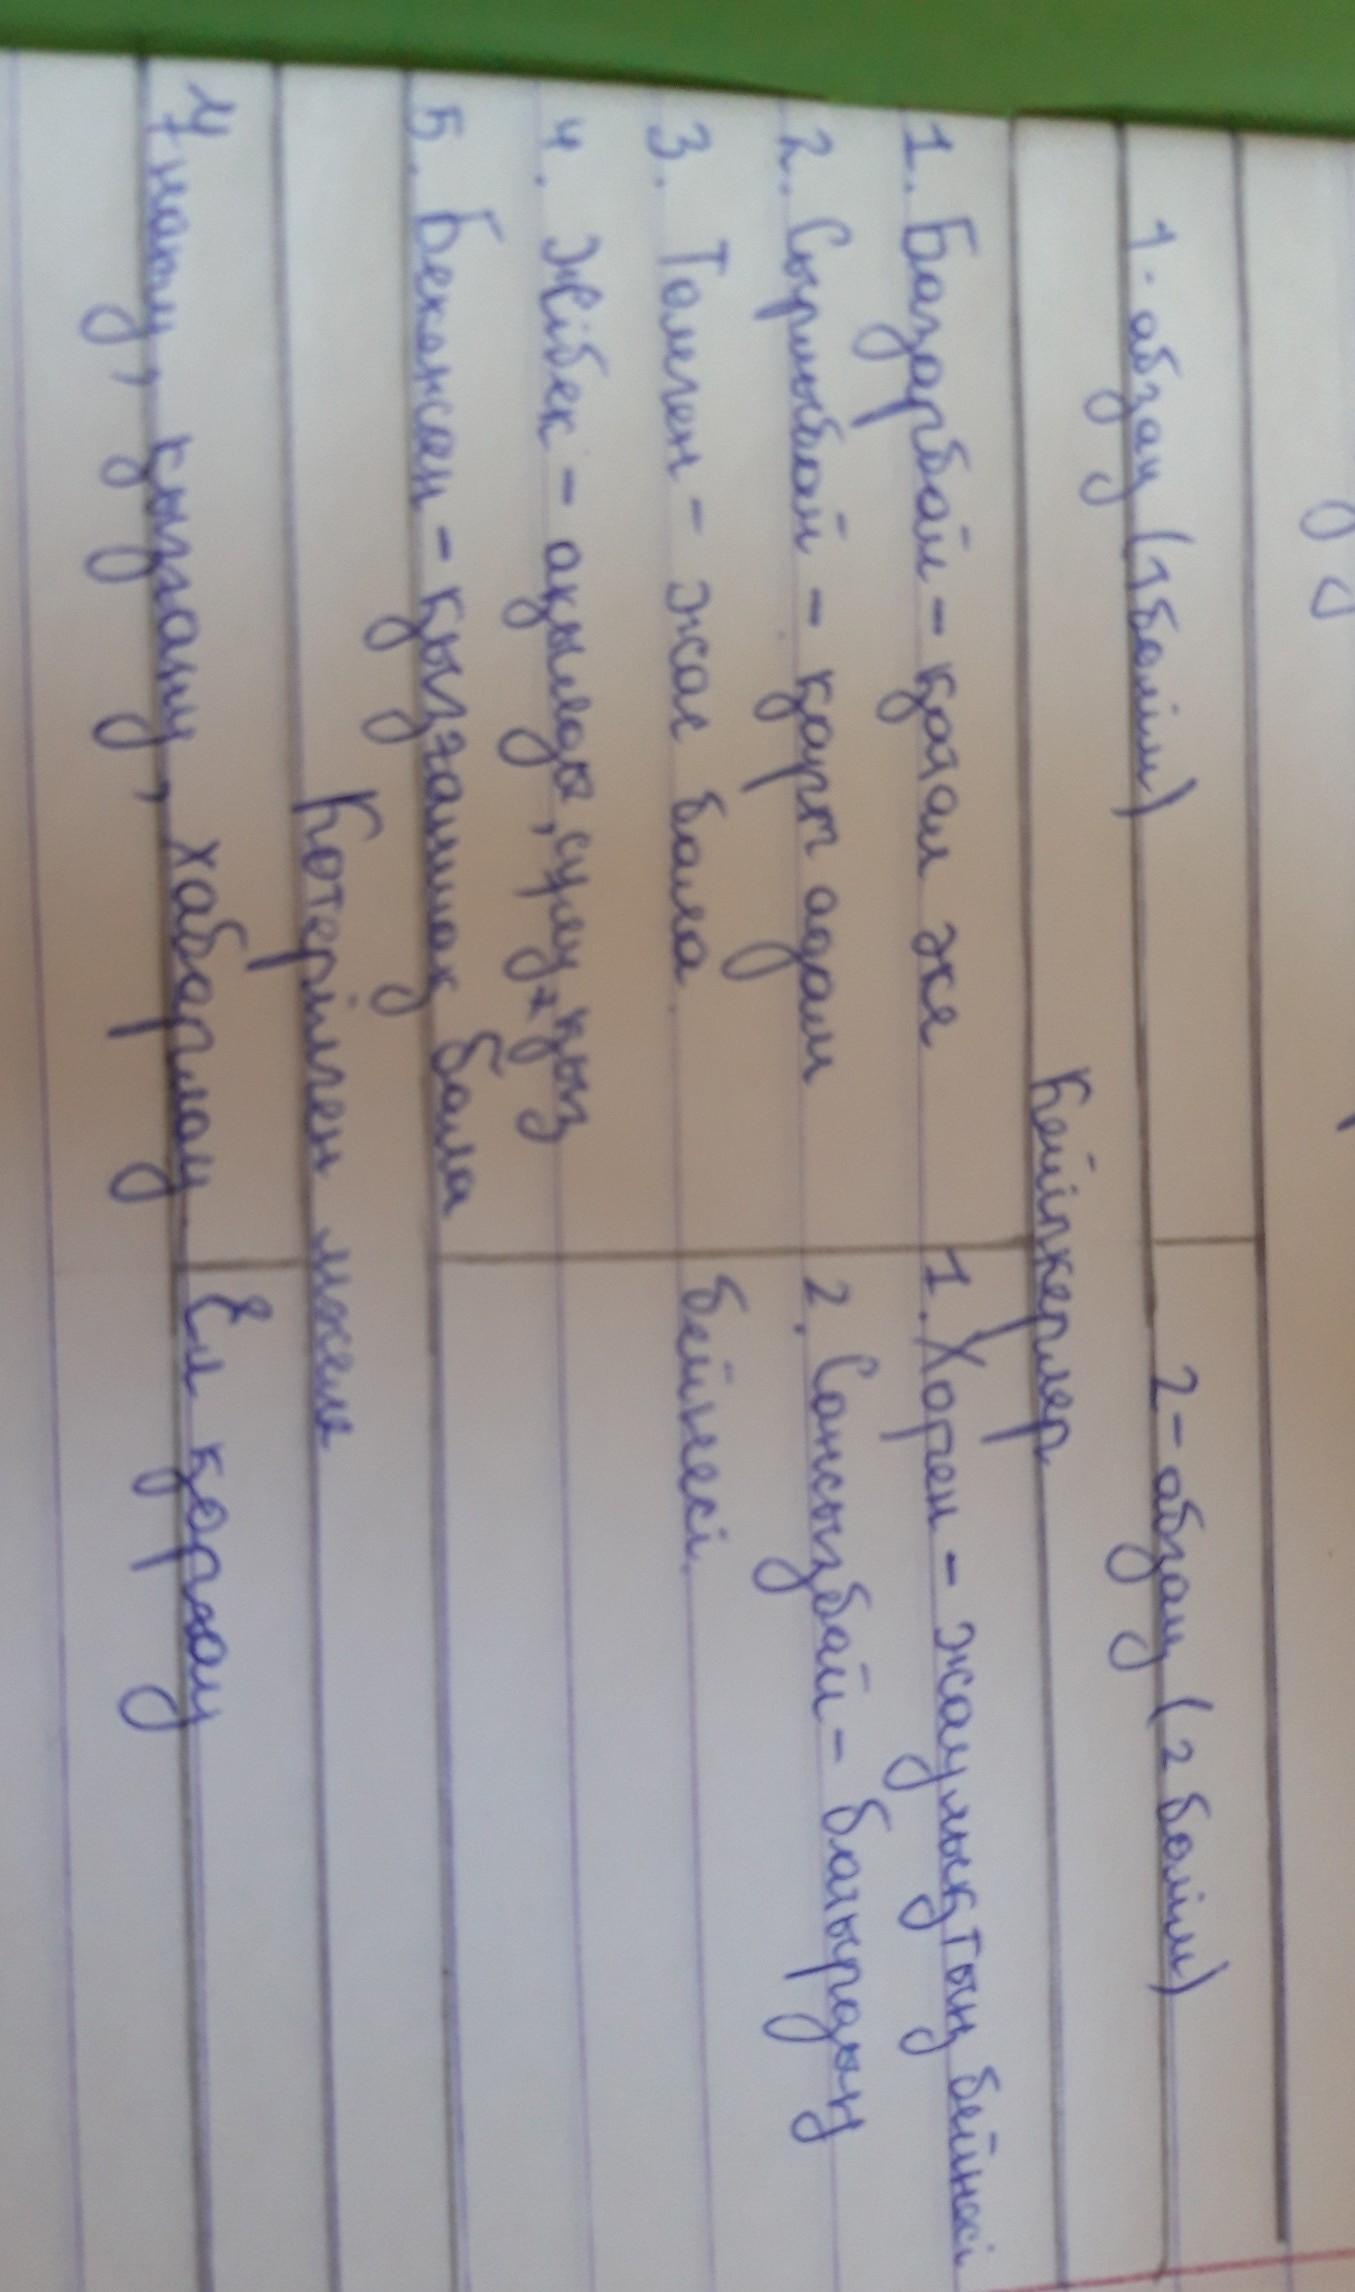 1-абзац (1бөлім) 2-абзац (2 бөлім)
Кейіпкерлер
1. Базарбай - қатал әке 1. Хорен - жаулықтың бейнесі
2. Сырлыбай - қарт адам 2. Сансызбай - батырдың
3. Төлеген - жас бала бейнесі.
4. Жібек - ақылды, сұлу қыз
5. Бекежан - қызғаншақ бала
Көтерілген мәселе
Ұнату, қызғану, хабарлау Ел қорғау